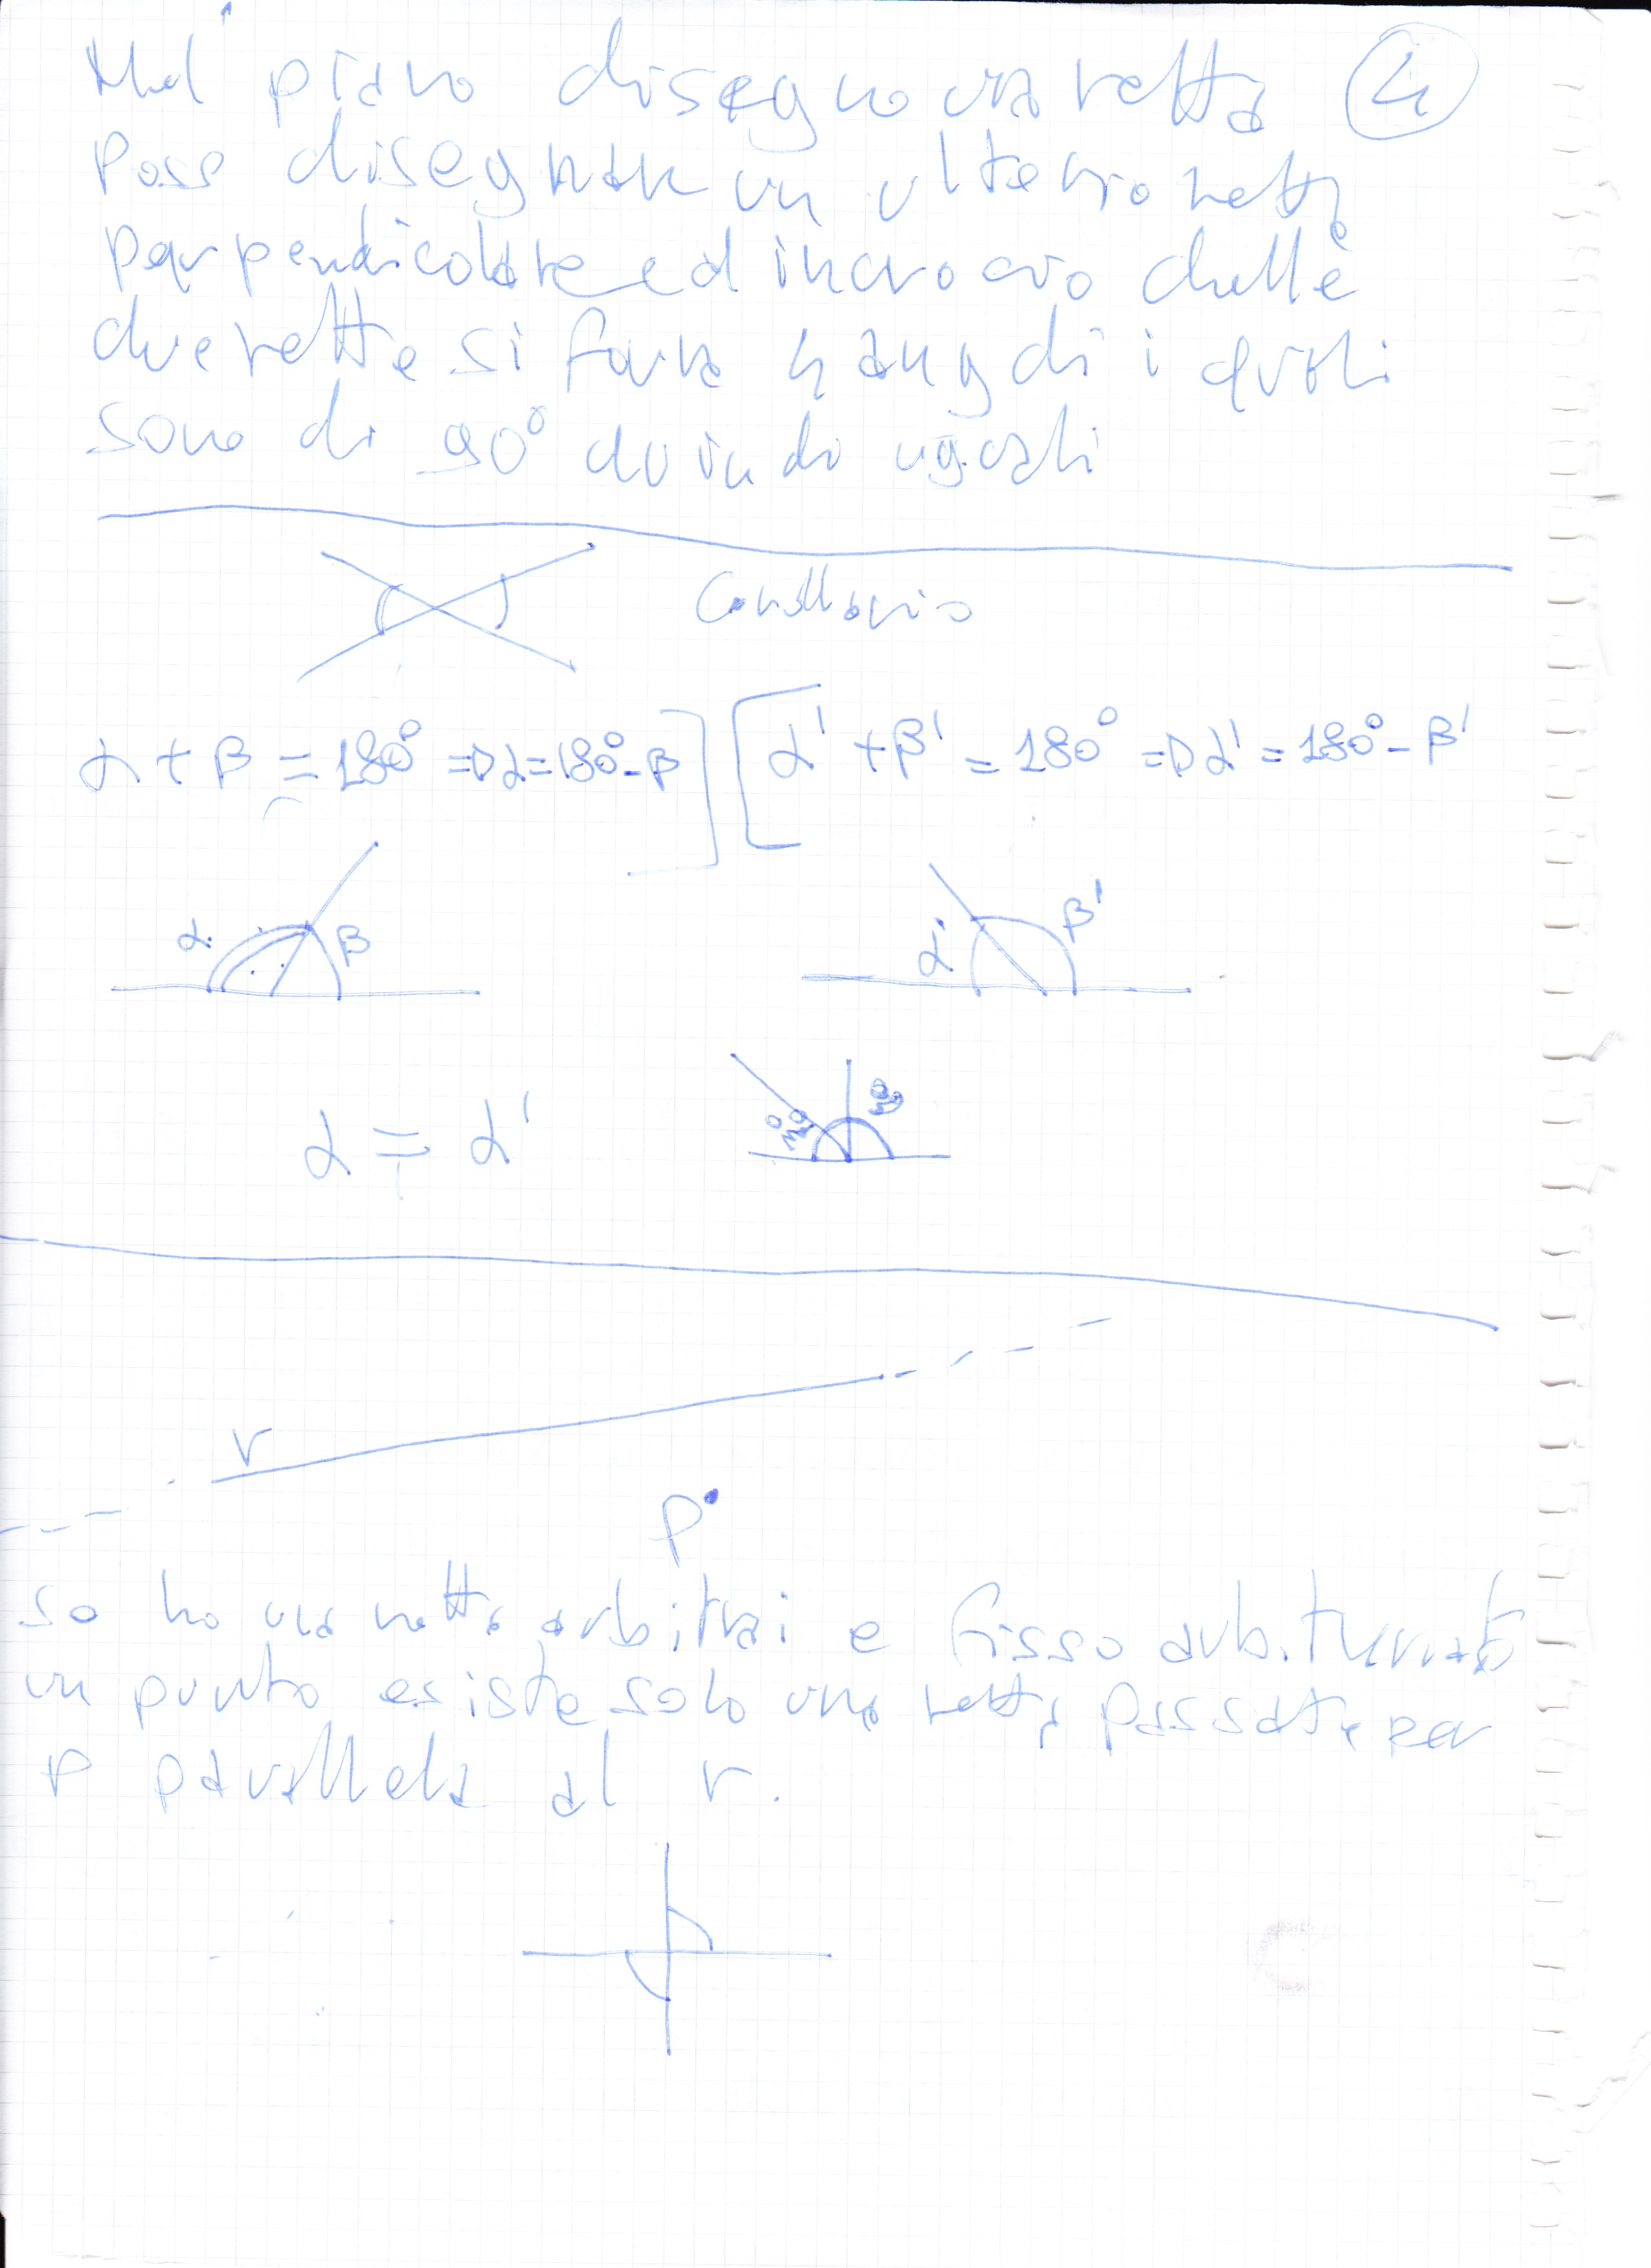 Nel piano disegno una retta 4
Poss disegnare un ulterio retta
perpendicolare ed incrocio delle
due rette si fara 4 angdi i quali
sono di 90° quindi uguali
Corollario
α + β = 180° => α = 180° - β ] [ α' + β' = 180° => α' = 180° - β'
α β α' β'
α = α'
r
P
so ho una retta arbitrai e fisso
un punto esiste solo una retta passate per
P parallela al r.